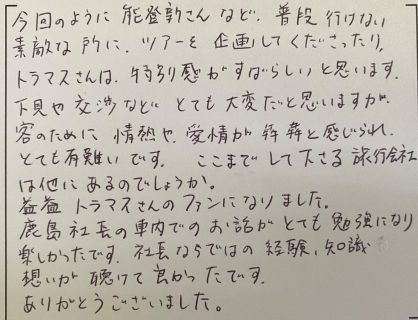 今回のように 能登新さん など、普段 行けない
素敵な 所に、ツアーを 企画してくださったり、
トラマスさんは、特別感がすばらしいと思います。
下見や 交渉など とても 大変だと思いますが、
客のために 情熱や、愛情が 犇犇と感じられ、
とても有難いです。 ここまで して下さる 旅行会社
は他に あるのでしょうか。
益益 トラマスさんのファンになりました。
鹿島 社長の車内での お話が とても 勉強になり
楽しかったです。社長ならではの 経験、知識
想いが 聴けて 良かったです。
ありがとうございました。